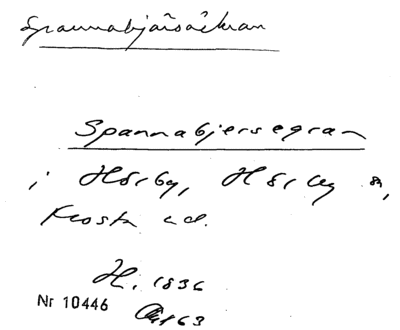 Spannabjärsåkran
Spannabjersegran
i Hörby, Hörby sn,
Frosta hd.
H. 1836
Nr 10446
163